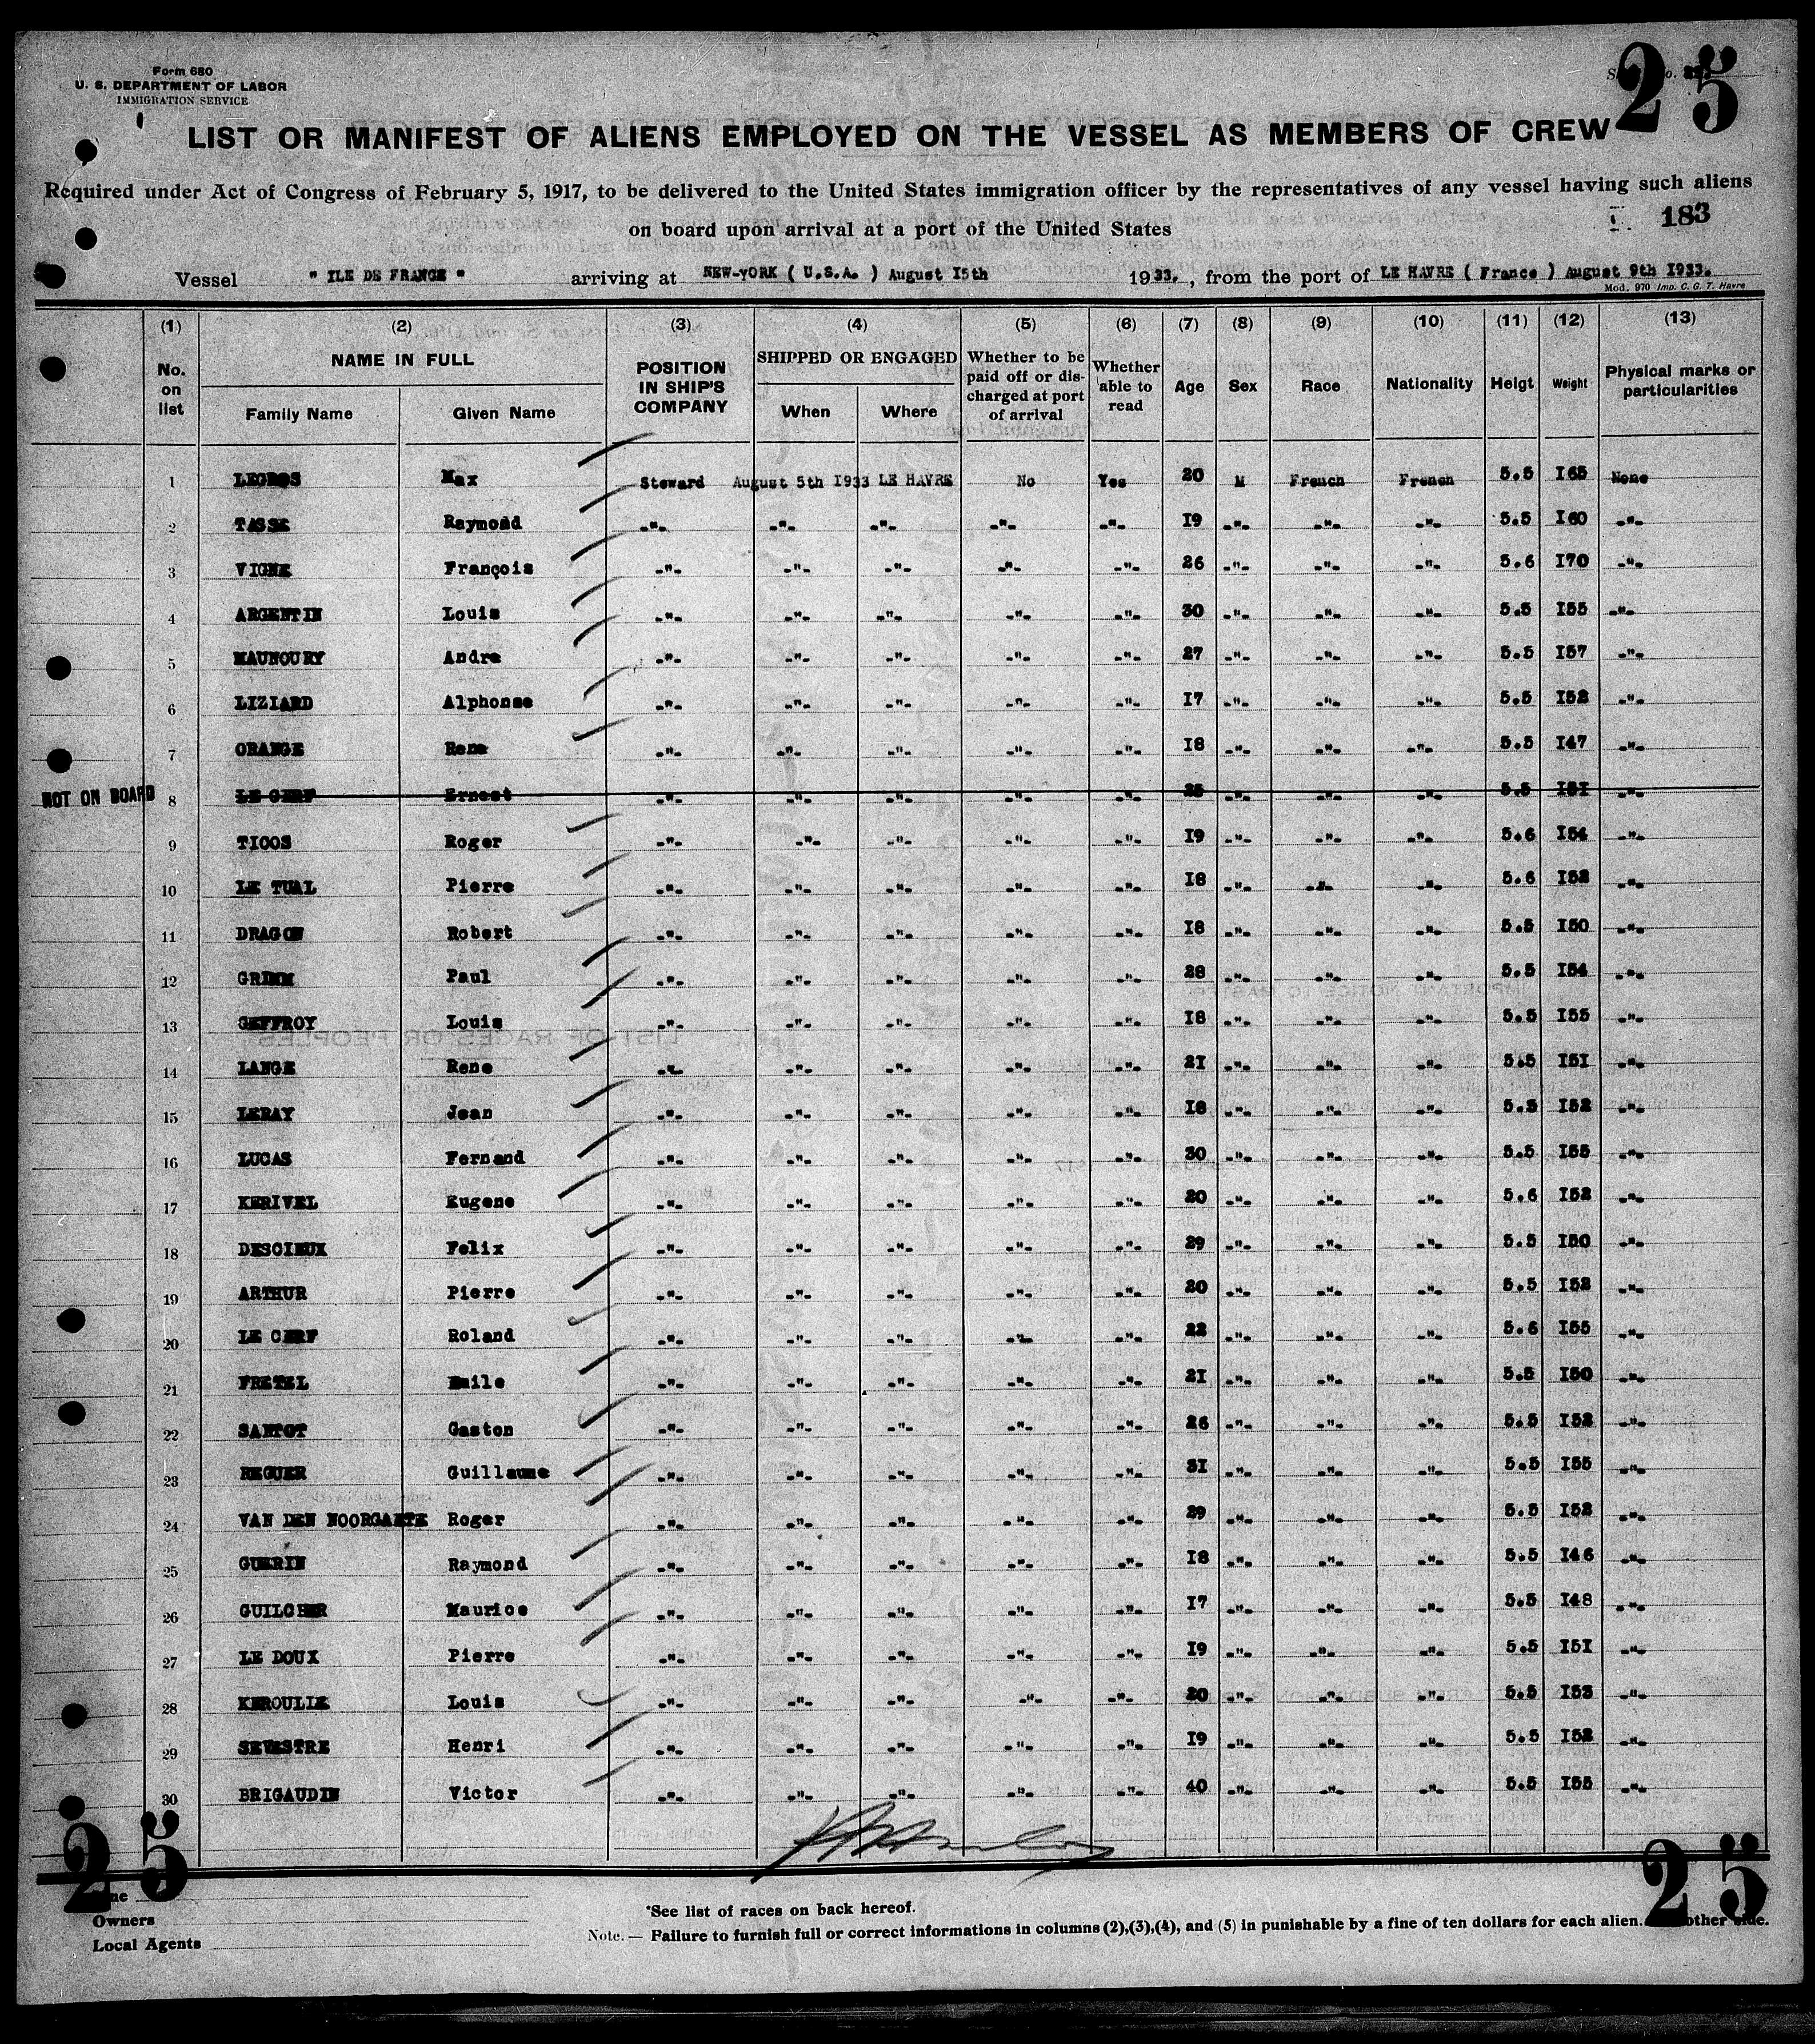 Form 680
U. S. DEPARTMENT OF LABOR
IMMIGRATION SERVICE
25
LIST OR MANIFEST OF ALIENS EMPLOYED ON THE VESSEL AS MEMBERS OF CREW
Required under Act of Congress of February 5, 1917, to be delivered to the United States immigration officer by the representatives of any vessel having such aliens
on board upon arrival at a port of the United States
183
Vessel " ILE DE FRANCE " arriving at NEW-YORK ( U.S.A. ) August I5th 1933. , from the port of LE HAVRE ( France ) August 9th I933.
Mod. 970 Imp. C. G. T. Havre
(1) (2) (3) (4) (5) (6) (7) (8) (9) (10) (11) (12) (13)
No. on list NAME IN FULL Family Name Given Name POSITION IN SHIP'S COMPANY SHIPPED OR ENGAGED When Where Whether to be paid off or discharged at port of arrival Whether able to read Age Sex Race Nationality Heigt Weight Physical marks or particularities
1 LEGROS Max Steward August 5th I933 LE HAVRE No Yes 20 M French French 5.5 I65 None
2 TASSE Raymond -"- -"- -"- -"- -"- I9 -"- -"- -"- 5.5 I60 -"-
3 VIGNE François -"- -"- -"- -"- -"- 26 -"- -"- -"- 5.6 I70 -"-
4 ARGENTIN Louis -"- -"- -"- -"- -"- 30 -"- -"- -"- 5.5 I55 -"-
5 MAUNOURY Andre -"- -"- -"- -"- -"- 27 -"- -"- -"- 5.5 I57 -"-
6 LIZIARD Alphonse -"- -"- -"- -"- -"- I7 -"- -"- -"- 5.5 I52 -"-
7 ORANGE Rene -"- -"- -"- -"- -"- I8 -"- -"- -"- 5.5 I47 -"-
NOT ON BOARD 8 LE CERF Ernest -"- -"- -"- -"- -"- 25 -"- -"- -"- 5.5 I5I -"-
9 TICOS Roger -"- -"- -"- -"- -"- I9 -"- -"- -"- 5.6 I54 -"-
10 LE TUAL Pierre -"- -"- -"- -"- -"- I8 -"- -"- -"- 5.6 I52 -"-
11 DRAGON Robert -"- -"- -"- -"- -"- I8 -"- -"- -"- 5.5 I50 -"-
12 GRIMM Paul -"- -"- -"- -"- -"- 28 -"- -"- -"- 5.5 I54 -"-
13 GEFFROY Louis -"- -"- -"- -"- -"- I8 -"- -"- -"- 5.5 I55 -"-
14 LANGE Rene -"- -"- -"- -"- -"- 2I -"- -"- -"- 5.5 I5I -"-
15 LERAY Jean -"- -"- -"- -"- -"- I8 -"- -"- -"- 5.5 I52 -"-
16 LUCAS Fernand -"- -"- -"- -"- -"- 30 -"- -"- -"- 5.5 I55 -"-
17 KERIVEL Eugene -"- -"- -"- -"- -"- 20 -"- -"- -"- 5.6 I52 -"-
18 DESCIEUX Felix -"- -"- -"- -"- -"- 29 -"- -"- -"- 5.5 I50 -"-
19 ARTHUR Pierre -"- -"- -"- -"- -"- 20 -"- -"- -"- 5.5 I52 -"-
20 LE CERF Roland -"- -"- -"- -"- -"- 22 -"- -"- -"- 5.6 I55 -"-
21 FRETEL Emile -"- -"- -"- -"- -"- 2I -"- -"- -"- 5.5 I50 -"-
22 SANTOT Gaston -"- -"- -"- -"- -"- 26 -"- -"- -"- 5.5 I52 -"-
23 REGUER Guillaume -"- -"- -"- -"- -"- 3I -"- -"- -"- 5.5 I55 -"-
24 VAN DEN NOORGAETE Roger -"- -"- -"- -"- -"- 29 -"- -"- -"- 5.5 I52 -"-
25 GUERIN Raymond -"- -"- -"- -"- -"- I8 -"- -"- -"- 5.5 I46 -"-
26 GUILCHER Maurice -"- -"- -"- -"- -"- I7 -"- -"- -"- 5.5 I48 -"-
27 LE DOUX Pierre -"- -"- -"- -"- -"- I9 -"- -"- -"- 5.5 I5I -"-
28 KEROULLE Louis -"- -"- -"- -"- -"- 20 -"- -"- -"- 5.5 I53 -"-
29 SEVESTRE Henri -"- -"- -"- -"- -"- I9 -"- -"- -"- 5.5 I52 -"-
30 BRIGAUDIN Victor -"- -"- -"- -"- -"- 40 -"- -"- -"- 5.5 I55 -"-
25 25
Owners
Local Agents
*See list of races on back hereof.
Note. — Failure to furnish full or correct informations in columns (2),(3),(4), and (5) in punishable by a fine of ten dollars for each alien. other side.